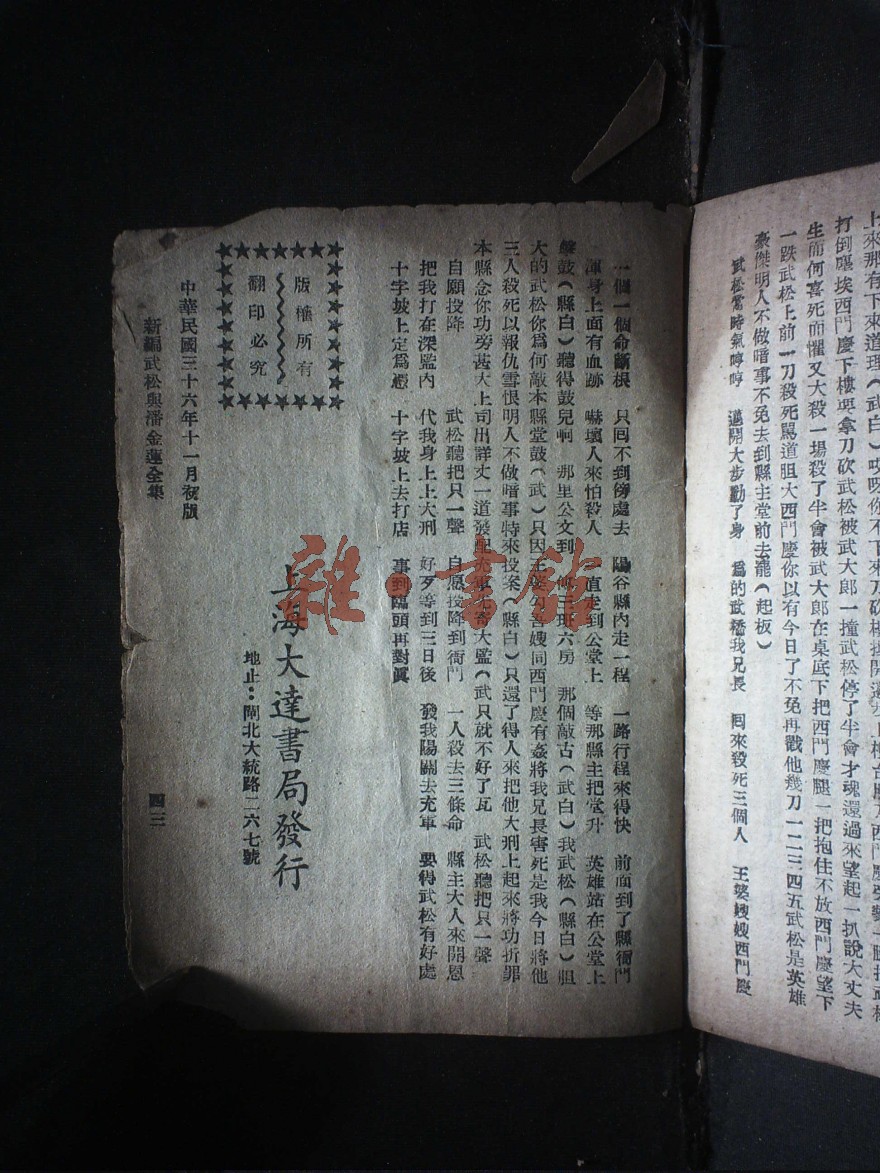 上來那有下來道理(武白)哎呀你不下來
打倒塵埃西門慶下樓要拿刀砍武松被武大郎一撞武松停了半會才魂還過來望起一扒說大丈夫
生而何喜死而懼又大殺一場殺了半會被武大郎在桌底下把西門慶腿一把抱住不放西門慶望下
一跌武松上前一刀殺死罵道胆大西門慶你以有今日了不免再戳他幾刀一二三四五武松是英雄
豪傑明人不做暗事不免去到縣主堂前去罷(起板)
武松當時氣哼哼 邁開大步動了身 為的武植我兄長 囘來殺死三個人 王婆嫂嫂西門慶
一個一個命斷根 只囘不到傍處去 陽谷縣內走一程 一路行程來得快 前面到了縣衙門
渾身上面有血跡 嚇壞人來怕殺人 一直走到公堂上 等那縣主把堂升 英雄站在公堂上
聲鼓(縣白)聽得鼓兒啊 那里公文到 三班六房 那個敲古(武白)我武松(縣白)胆
大的武松你為何敲本縣堂鼓(武)只因王婆勾吾嫂同西門慶有姦將我兄長害死是我今日將他
三人殺死以報仇雪恨明人不做暗事特來投案(縣白)只還了得人來把他大刑上起來將功折罪
本縣念你功旁甚大上司出詳文一道發配充軍先寄大監(武只就不好了瓦 武松聽把只一聲
自願投降 武松聽把只一聲 自愿投降到衙門 一人殺去三條命 縣主大人來開恩
把我打在深監內 代我身上上大刑 好歹等到三日後 發我陽關去充軍 要得武松有好處
十字坡上定為憑 十字坡上去打店 事到臨頭再對眞
版權所有
翻印必究
上海大達書局發行
地止:閘北大統路二六七號
中華民國三十六年十一月初版
新編武松與潘金蓮全集
四三
雜·書館